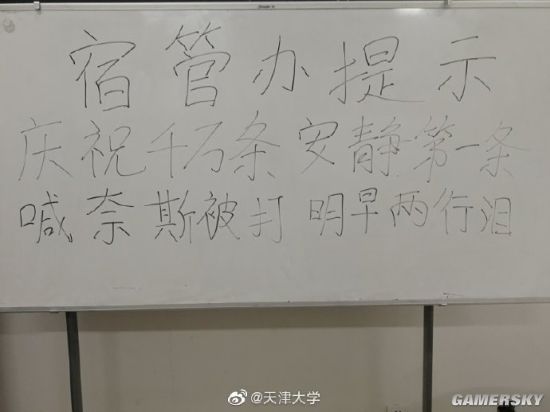 宿管办提示
庆祝千万条 安静第一条
喊奈斯被打 明早两行泪
@天津大学
GAMERSKY